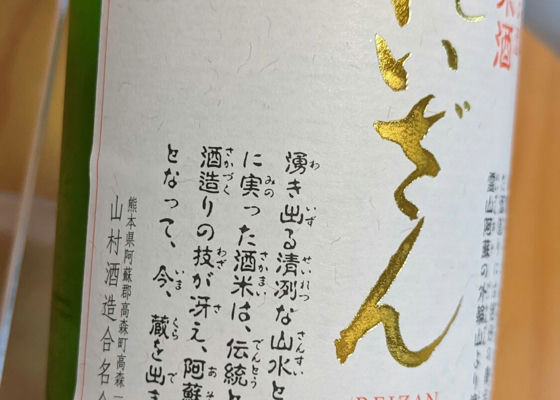 米酒
れいざん
REIZAN
霊山阿蘇の外輪山より
湧き出る清冽な山水と
に実った酒米は、伝統と
酒造りの技が冴え、阿蘇
となって、今、蔵を出ま
熊本県阿蘇郡高森町高森
山村酒造合名